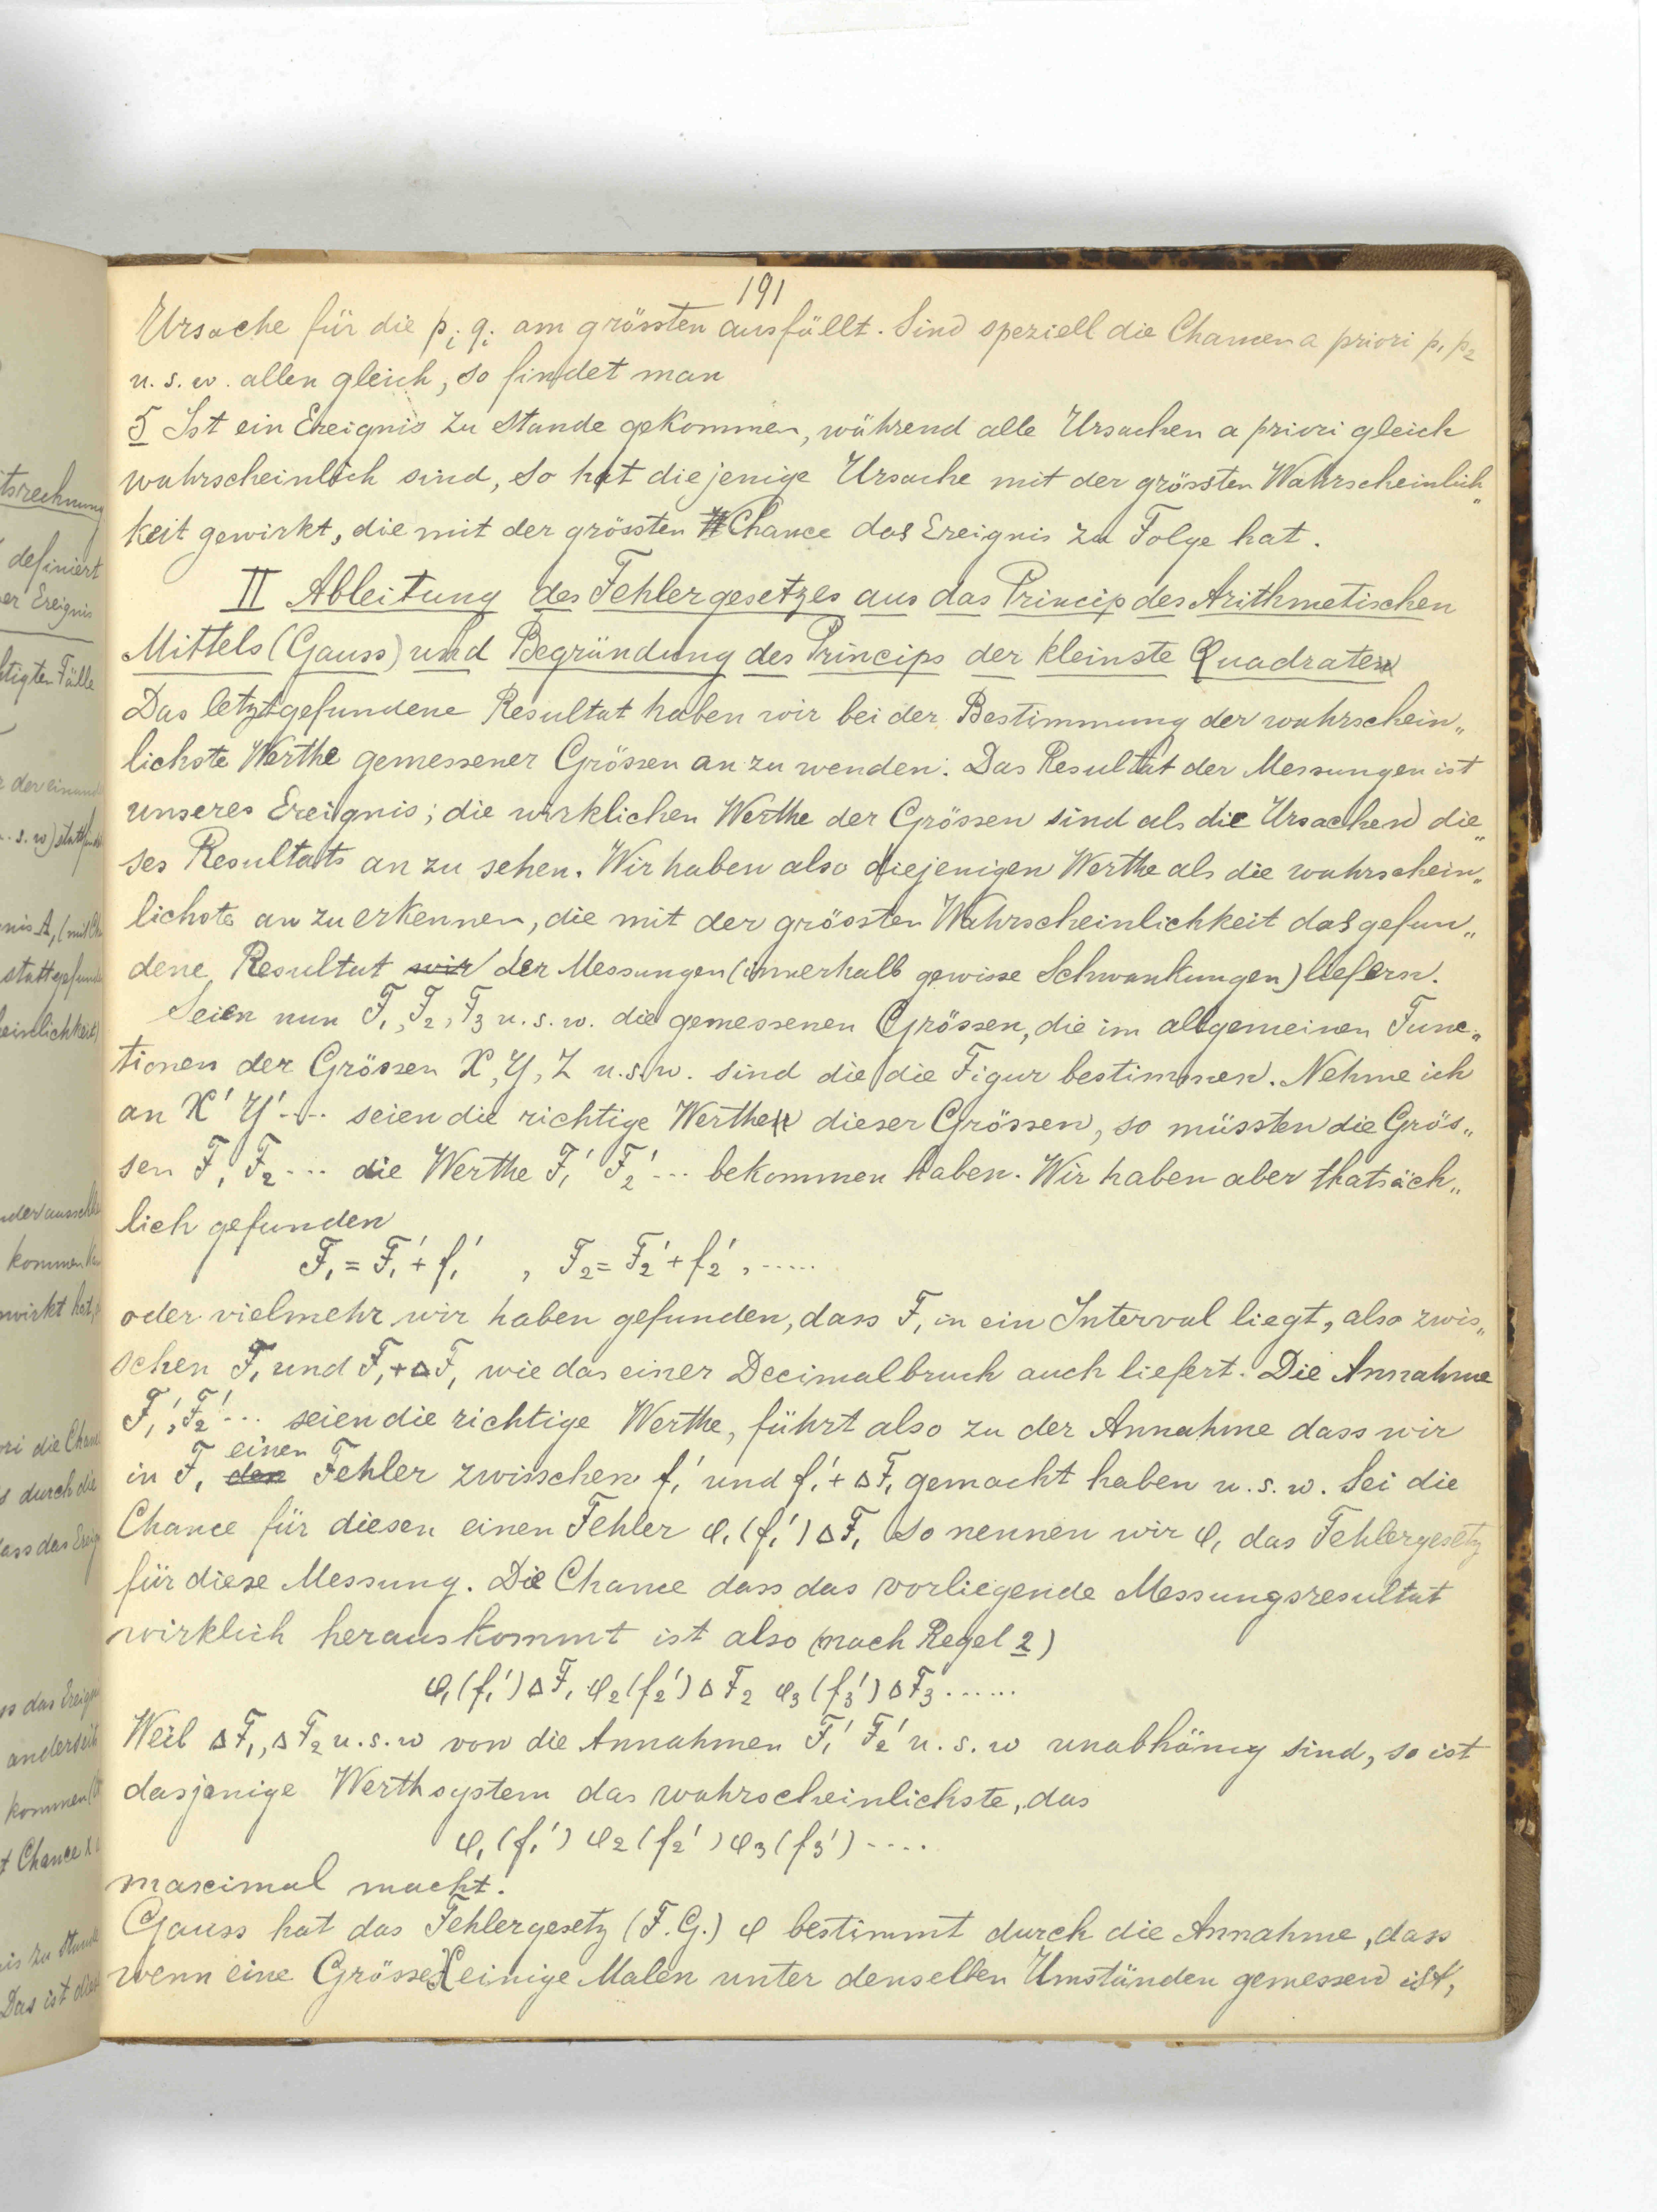 191
Ursache für die p_i q_i am grössten ausfällt. Sind speziell die Chancen a priori p_1 p_2
u. s. w. allen gleich, so findet man
5 Ist ein Ereignis zu Stande gekommen, während alle Ursachen a priori gleich
wahrscheinlich sind, so hat diejenige Ursache mit der grössten Wahrscheinlich„
keit gewirkt, die mit der grössten Chance das Ereignis zu Folge hat.
II Ableitung des Fehlergesetzes aus das Princip des Arithmetischen
Mittels (Gauss) und Begründung des Princips der kleinste Quadraten
Das letztgefundene Resultat haben wir bei der Bestimmung der wahrschein„
lichste Werthe gemessener Grössen an zu wenden. Das Resultat der Messungen ist
unseres Ereignis; die wirklichen Werthe der Grössen sind als die Ursachen die„
ses Resultats an zu sehen. Wir haben also diejenigen Werthe als die wahrschein„
lichste an zu erkennen, die mit der grössten Wahrscheinlichkeit das gefun„
dene Resultat wir der Messungen (innerhalb gewisse Schwankungen) liefern.
Seien nun F_1, F_2, F_3 u. s. w. die gemessenen Grössen, die im allgemeinen Func„
tionen der Grössen X, Y, Z u. s. w. sind die die Figur bestimmen. Nehme ich
an X' Y' .... seien die richtige Werthe dieser Grössen, so müssten die Grös„
sen F_1 F_2 ... die Werthe F_1' F_2' ... bekommen haben. Wir haben aber thatsäch„
lich gefunden
F_1 = F_1' + f_1' , F_2 = F_2' + f_2' , .....
oder vielmehr wir haben gefunden, dass F_1 in ein Interval liegt, also zwis„
schen F_1 und F_1 + ΔF_1 wie das einer Decimalbruch auch liefert. Die Annahme
F_1', F_2' ... seien die richtige Werthe, führt also zu der Annahme dass wir
einen
in F_1 den Fehler zwisschen f_1' und f_1' + ΔF_1 gemacht haben u. s. w. Sei die
Chance für diesen einen Fehler φ_1 (f_1') ΔF_1 so nennen wir φ_1 das Fehlergesetz
für diese Messung. Die Chance dass das vorliegende Messungsresultat
wirklich herauskommt ist also (nach Regel 2)
φ_1 (f_1') ΔF_1 φ_2 (f_2') ΔF_2 φ_3 (f_3') ΔF_3 ......
Weil ΔF_1, ΔF_2 u. s. w von die Annahmen F_1' F_2' u. s. w unabhänig sind, so ist
dasjenige Werthsystem das wahrscheinlichste, das
φ_1 (f_1') φ_2 (f_2') φ_3 (f_3') ....
maximal macht.
Gauss hat das Fehlergesetz (F. G.) φ bestimmt durch die Annahme, dass
wenn eine Grösse X einige Malen unter denselben Umständen gemessen ist,